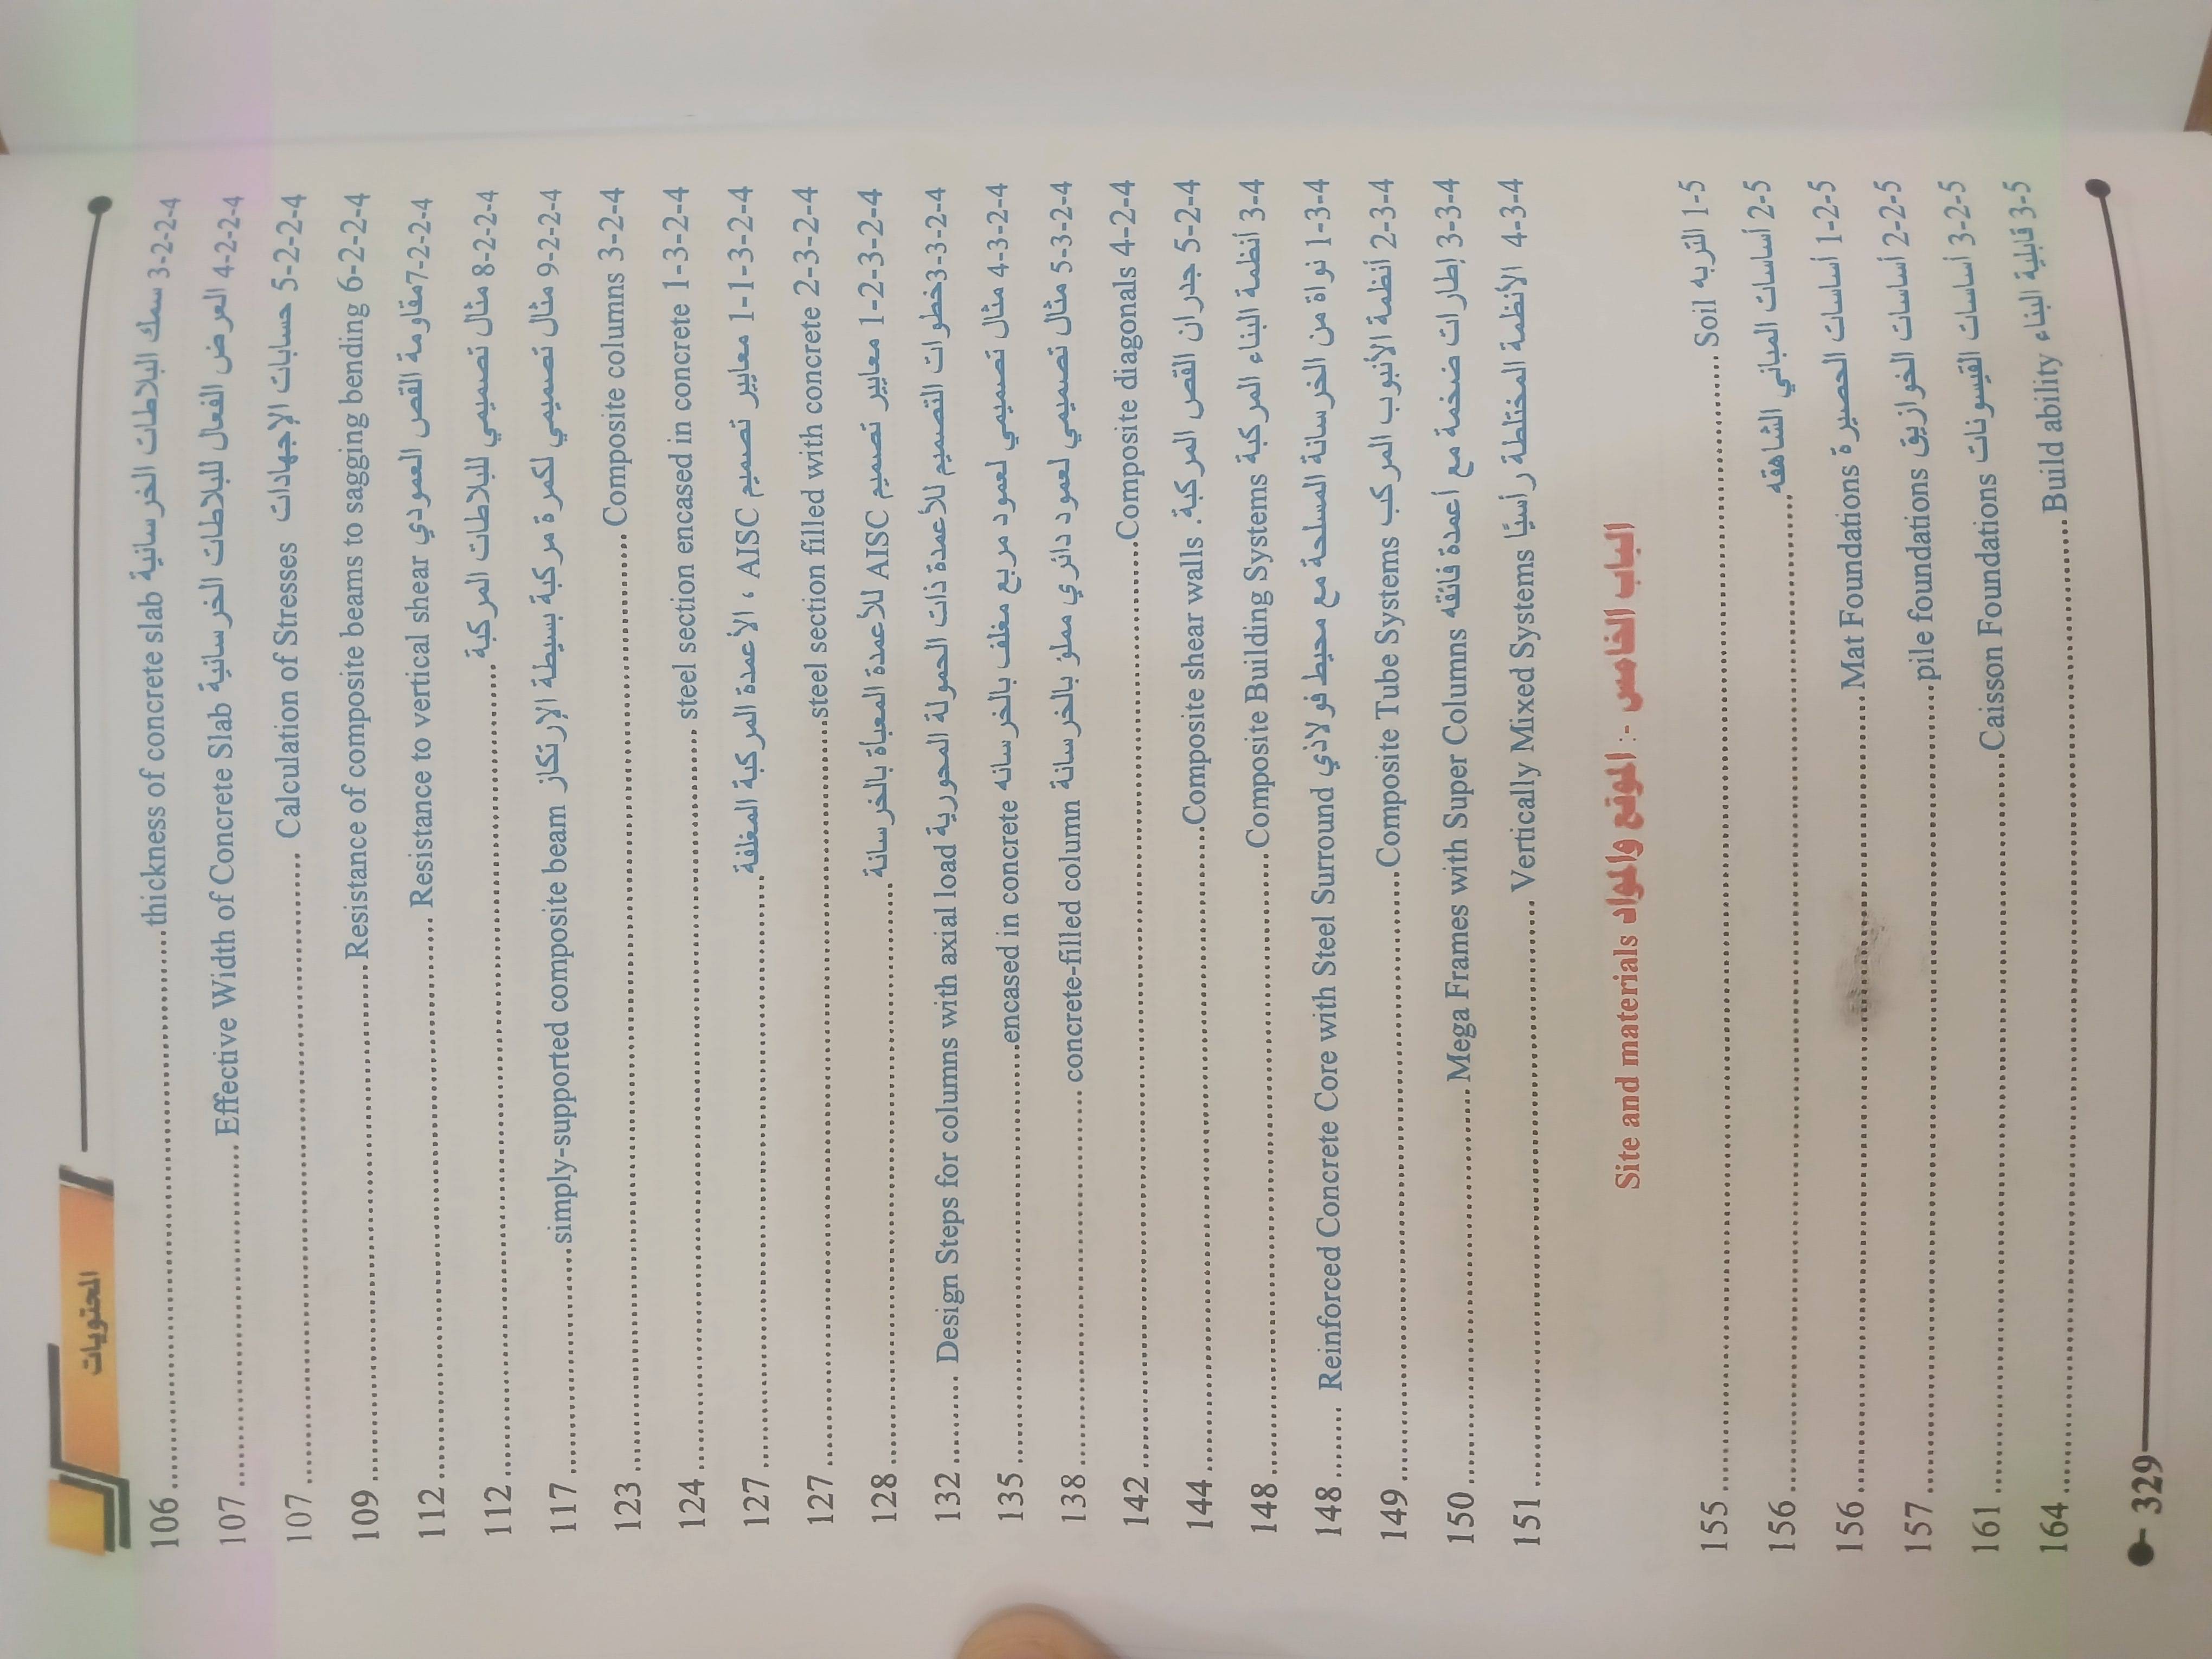 المحتويات
3-2-2-4 سمك البلاطات الخرسانية thickness of concrete slab ........ 106
4-2-2-4 العرض الفعال للبلاطات الخرسانية Effective Width of Concrete Slab ........ 107
5-2-2-4 حسابات الإجهادات Calculation of Stresses ........ 107
6-2-2-4 Resistance of composite beams to sagging bending ........ 109
7-2-2-4مقاومة القص العمودي Resistance to vertical shear ........ 112
8-2-2-4 مثال تصميمي للبلاطات المركبة ........ 112
9-2-2-4 مثال تصميمي لكمرة مركبة بسيطة الإرتكاز simply-supported composite beam ........ 117
3-2-4 Composite columns ........ 123
1-3-2-4 steel section encased in concrete ........ 124
1-1-3-2-4 معايير تصميم AISC ، الأعمدة المركبة المغلفة ........ 127
2-3-2-4 steel section filled with concrete ........ 127
1-2-3-2-4 معايير تصميم AISC للأعمدة المعبأة بالخرسانة ........ 128
3-3-2-4خطوات التصميم للأعمدة ذات الحمولة المحورية Design Steps for columns with axial load ........ 132
4-3-2-4 مثال تصميمي لعمود مربع مغلف بالخرسانه encased in concrete ........ 135
5-3-2-4 مثال تصميمي لعمود دائري مملؤ بالخرسانة concrete-filled column ........ 138
4-2-4 Composite diagonals ........ 142
5-2-4 جدران القص المركبة. Composite shear walls ........ 144
3-4 أنظمة البناء المركبة Composite Building Systems ........ 148
1-3-4 نواة من الخرسانة المسلحة مع محيط فولاذي Reinforced Concrete Core with Steel Surround ........ 148
2-3-4 أنظمة الأنبوب المركب Composite Tube Systems ........ 149
3-3-4 إطارات ضخمة مع أعمدة فائقه Mega Frames with Super Columns ........ 150
4-3-4 الأنظمة المختلطة رأسيًا Vertically Mixed Systems ........ 151
الباب الخامس :- الموقع والمواد Site and materials
1-5 التربه Soil ........ 155
2-5 أساسات المباني الشاهقه ........ 156
1-2-5 أساسات الحصيرة Mat Foundations ........ 156
2-2-5 أساسات الخوازيق pile foundations ........ 157
3-2-5 أساسات القيسونات Caisson Foundations ........ 161
3-5 قابلية البناء Build ability ........ 164
329